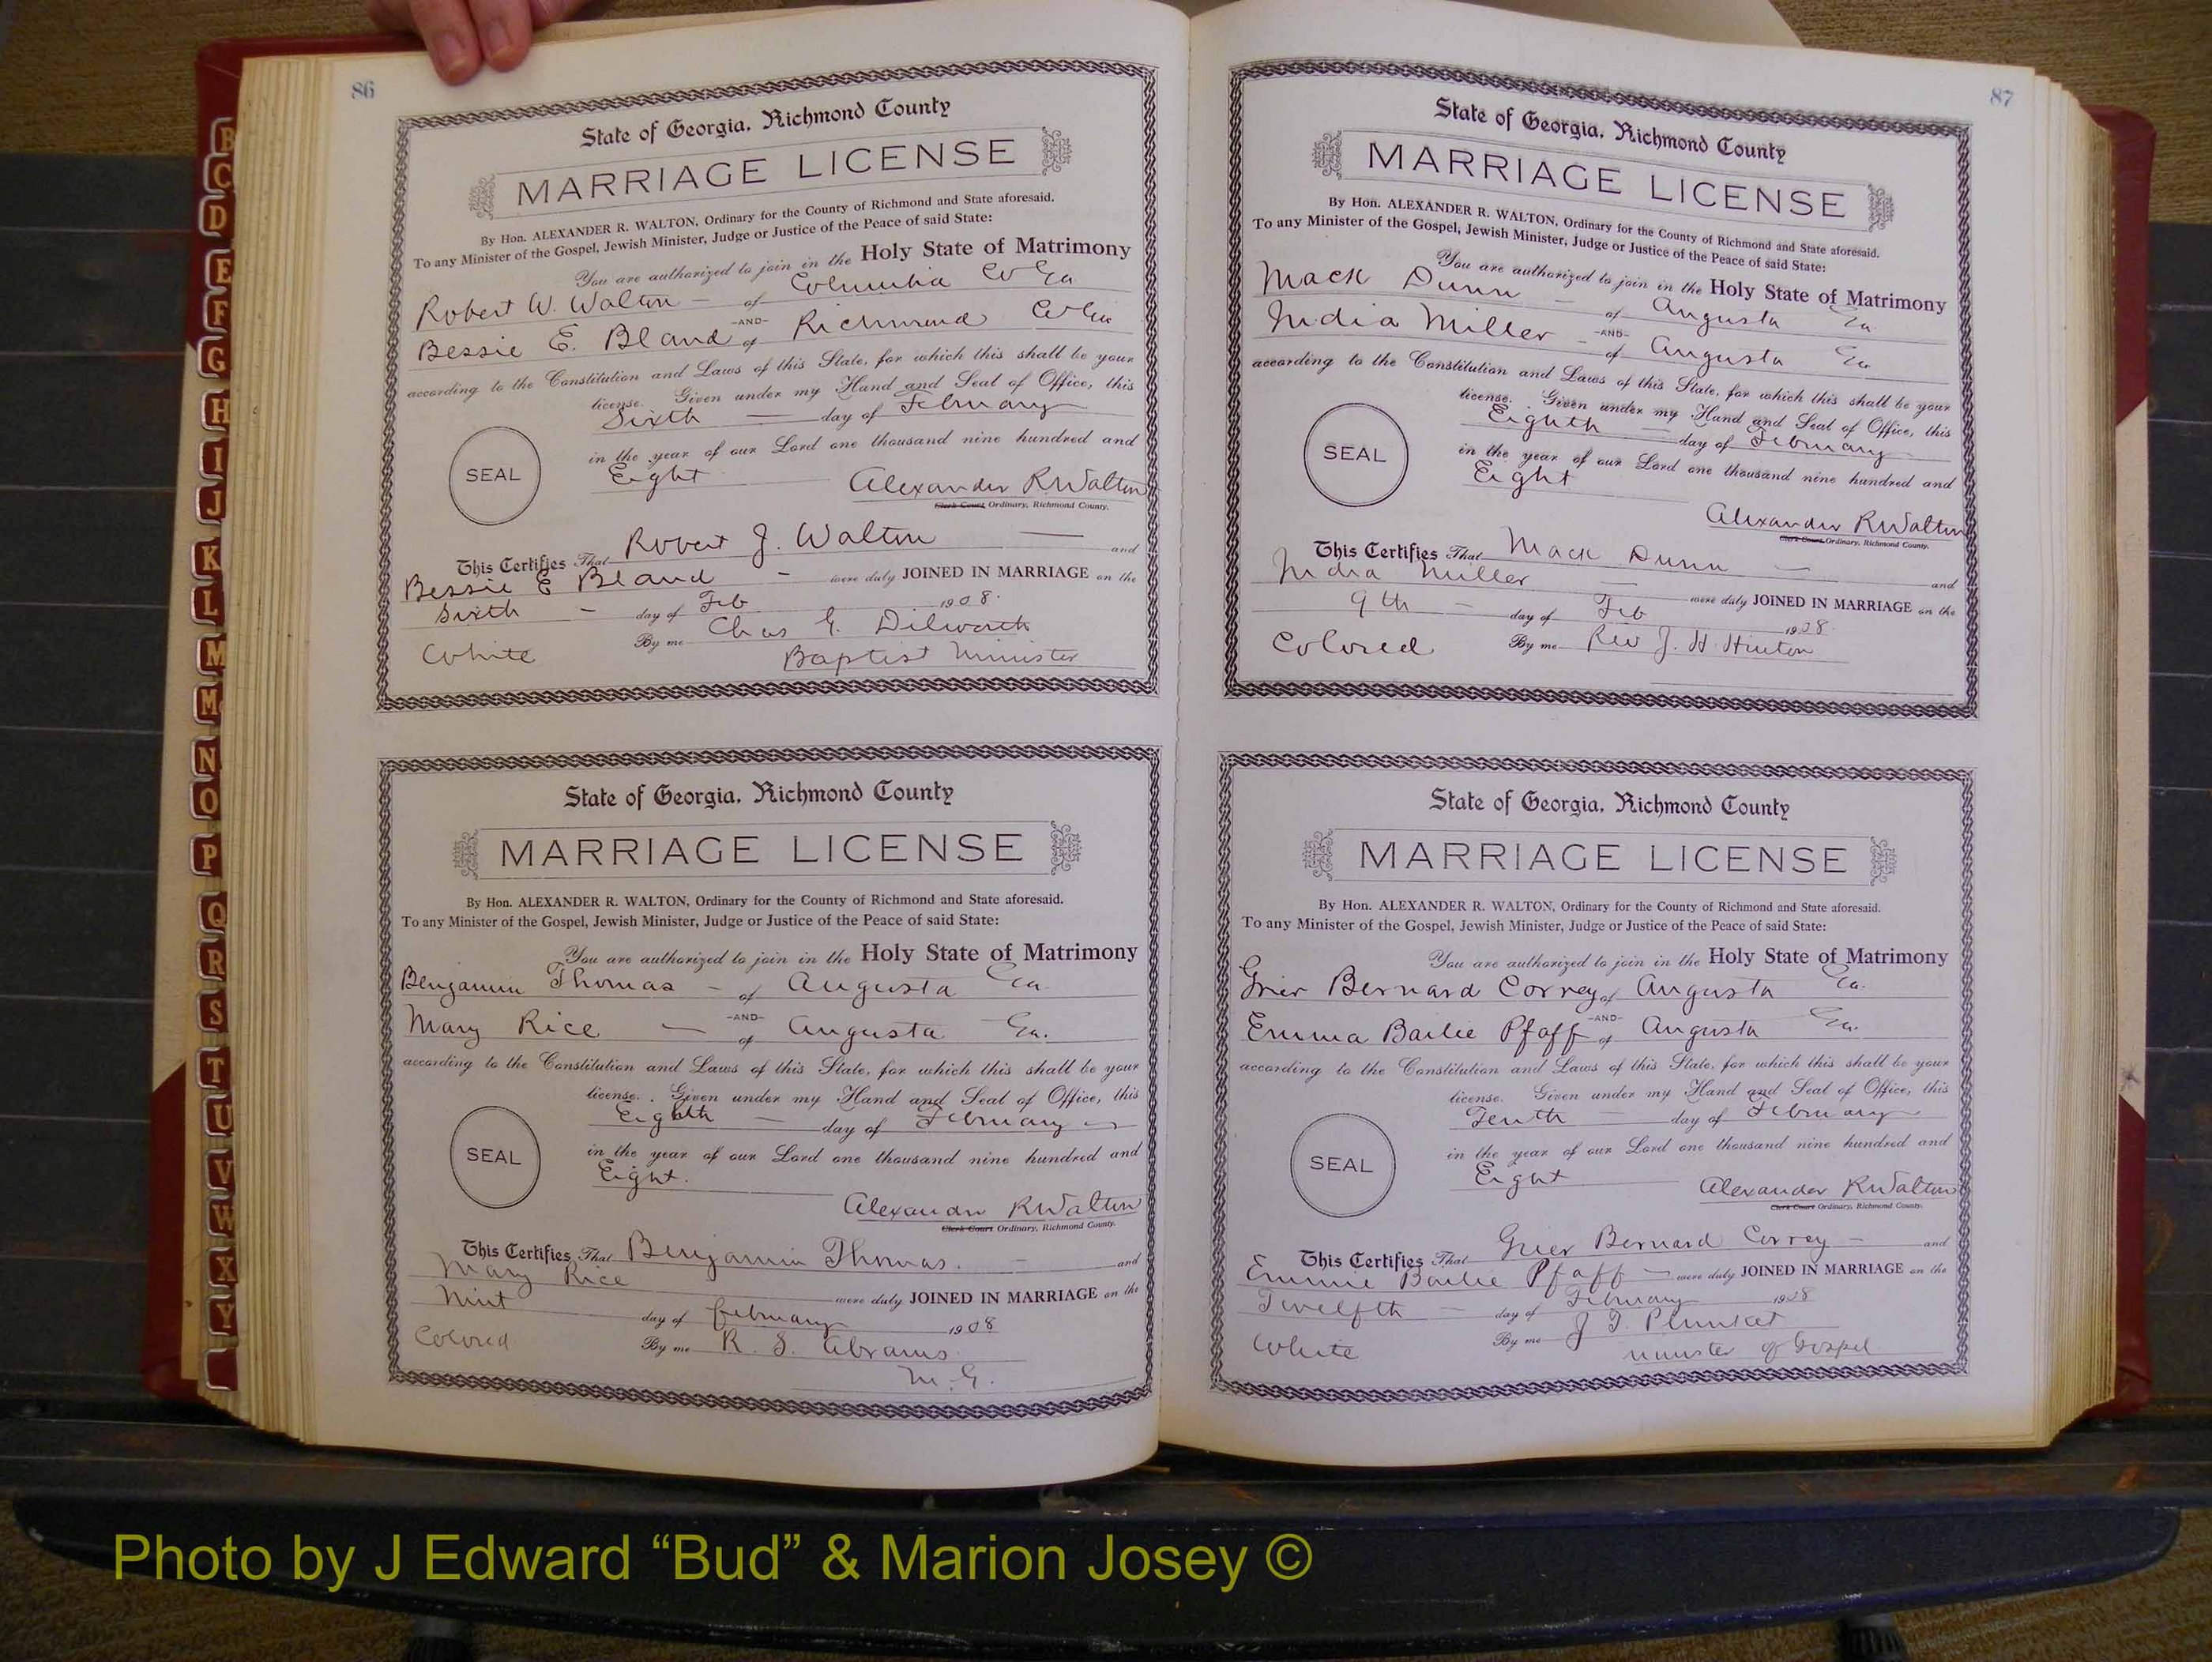 86
State of Georgia, Richmond County
MARRIAGE LICENSE
By Hon. ALEXANDER R. WALTON, Ordinary for the County of Richmond and State aforesaid.
To any Minister of the Gospel, Jewish Minister, Judge or Justice of the Peace of said State:
You are authorized to join in the Holy State of Matrimony
Robert W. Walton — of Columbia Co Ga
-AND-
Bessie E. Bland of Richmond Co Ga
according to the Constitution and Laws of this State, for which this shall be your
license. Given under my Hand and Seal of Office, this
Sixth — day of February
in the year of our Lord one thousand nine hundred and
SEAL
Eight
Alexander R Walton
Clerk Court Ordinary, Richmond County.
This Certifies That Robert J. Walton — and
Bessie E Bland - were duly JOINED IN MARRIAGE on the
Sixth - day of Feb 1908.
White By me Chas G. Dilworth
Baptist Minister
State of Georgia, Richmond County
MARRIAGE LICENSE
By Hon. ALEXANDER R. WALTON, Ordinary for the County of Richmond and State aforesaid.
To any Minister of the Gospel, Jewish Minister, Judge or Justice of the Peace of said State:
You are authorized to join in the Holy State of Matrimony
Benjamin Thomas - of Augusta Ga.
-AND-
Mary Rice — of Augusta Ga.
according to the Constitution and Laws of this State, for which this shall be your
license. Given under my Hand and Seal of Office, this
Eighth — day of February
in the year of our Lord one thousand nine hundred and
SEAL
Eight.
Alexander R Walton
Clerk Court Ordinary, Richmond County.
This Certifies That Benjamin Thomas. - and
Mary Rice were duly JOINED IN MARRIAGE on the
Nint day of february 1908
Colored By me R. S. Abrams
M. G.
87
State of Georgia, Richmond County
MARRIAGE LICENSE
By Hon. ALEXANDER R. WALTON, Ordinary for the County of Richmond and State aforesaid.
To any Minister of the Gospel, Jewish Minister, Judge or Justice of the Peace of said State:
You are authorized to join in the Holy State of Matrimony
Mack Dunn — of Augusta Ga.
-AND-
India Miller - of Augusta Ga
according to the Constitution and Laws of this State, for which this shall be your
license. Given under my Hand and Seal of Office, this
Eighth — day of February
in the year of our Lord one thousand nine hundred and
SEAL
Eight
Alexander R Walton
Clerk Court Ordinary, Richmond County.
This Certifies That Mack Dunn — and
India Miller — were duly JOINED IN MARRIAGE on the
9th - day of Feb 1908.
Colored By me Rev J. H. Hinton
State of Georgia, Richmond County
MARRIAGE LICENSE
By Hon. ALEXANDER R. WALTON, Ordinary for the County of Richmond and State aforesaid.
To any Minister of the Gospel, Jewish Minister, Judge or Justice of the Peace of said State:
You are authorized to join in the Holy State of Matrimony
Grier Bernard Correy of Augusta Ga.
-AND-
Emma Bailie Pfaff of Augusta Ga.
according to the Constitution and Laws of this State, for which this shall be your
license. Given under my Hand and Seal of Office, this
Tenth — day of February
in the year of our Lord one thousand nine hundred and
SEAL
Eight
Alexander R Walton
Clerk Court Ordinary, Richmond County.
This Certifies That Grier Bernard Correy — and
Emmie Bailie Pfaff — were duly JOINED IN MARRIAGE on the
Twelfth — day of February 1908
White By me J T. Plunket
minister of Gospel
B
C
D
E
F
G
H
I
J
K
L
M
Mc
N
O
P
Q
R
S
T
U
V
W
X
Y
Photo by J Edward “Bud” & Marion Josey ©